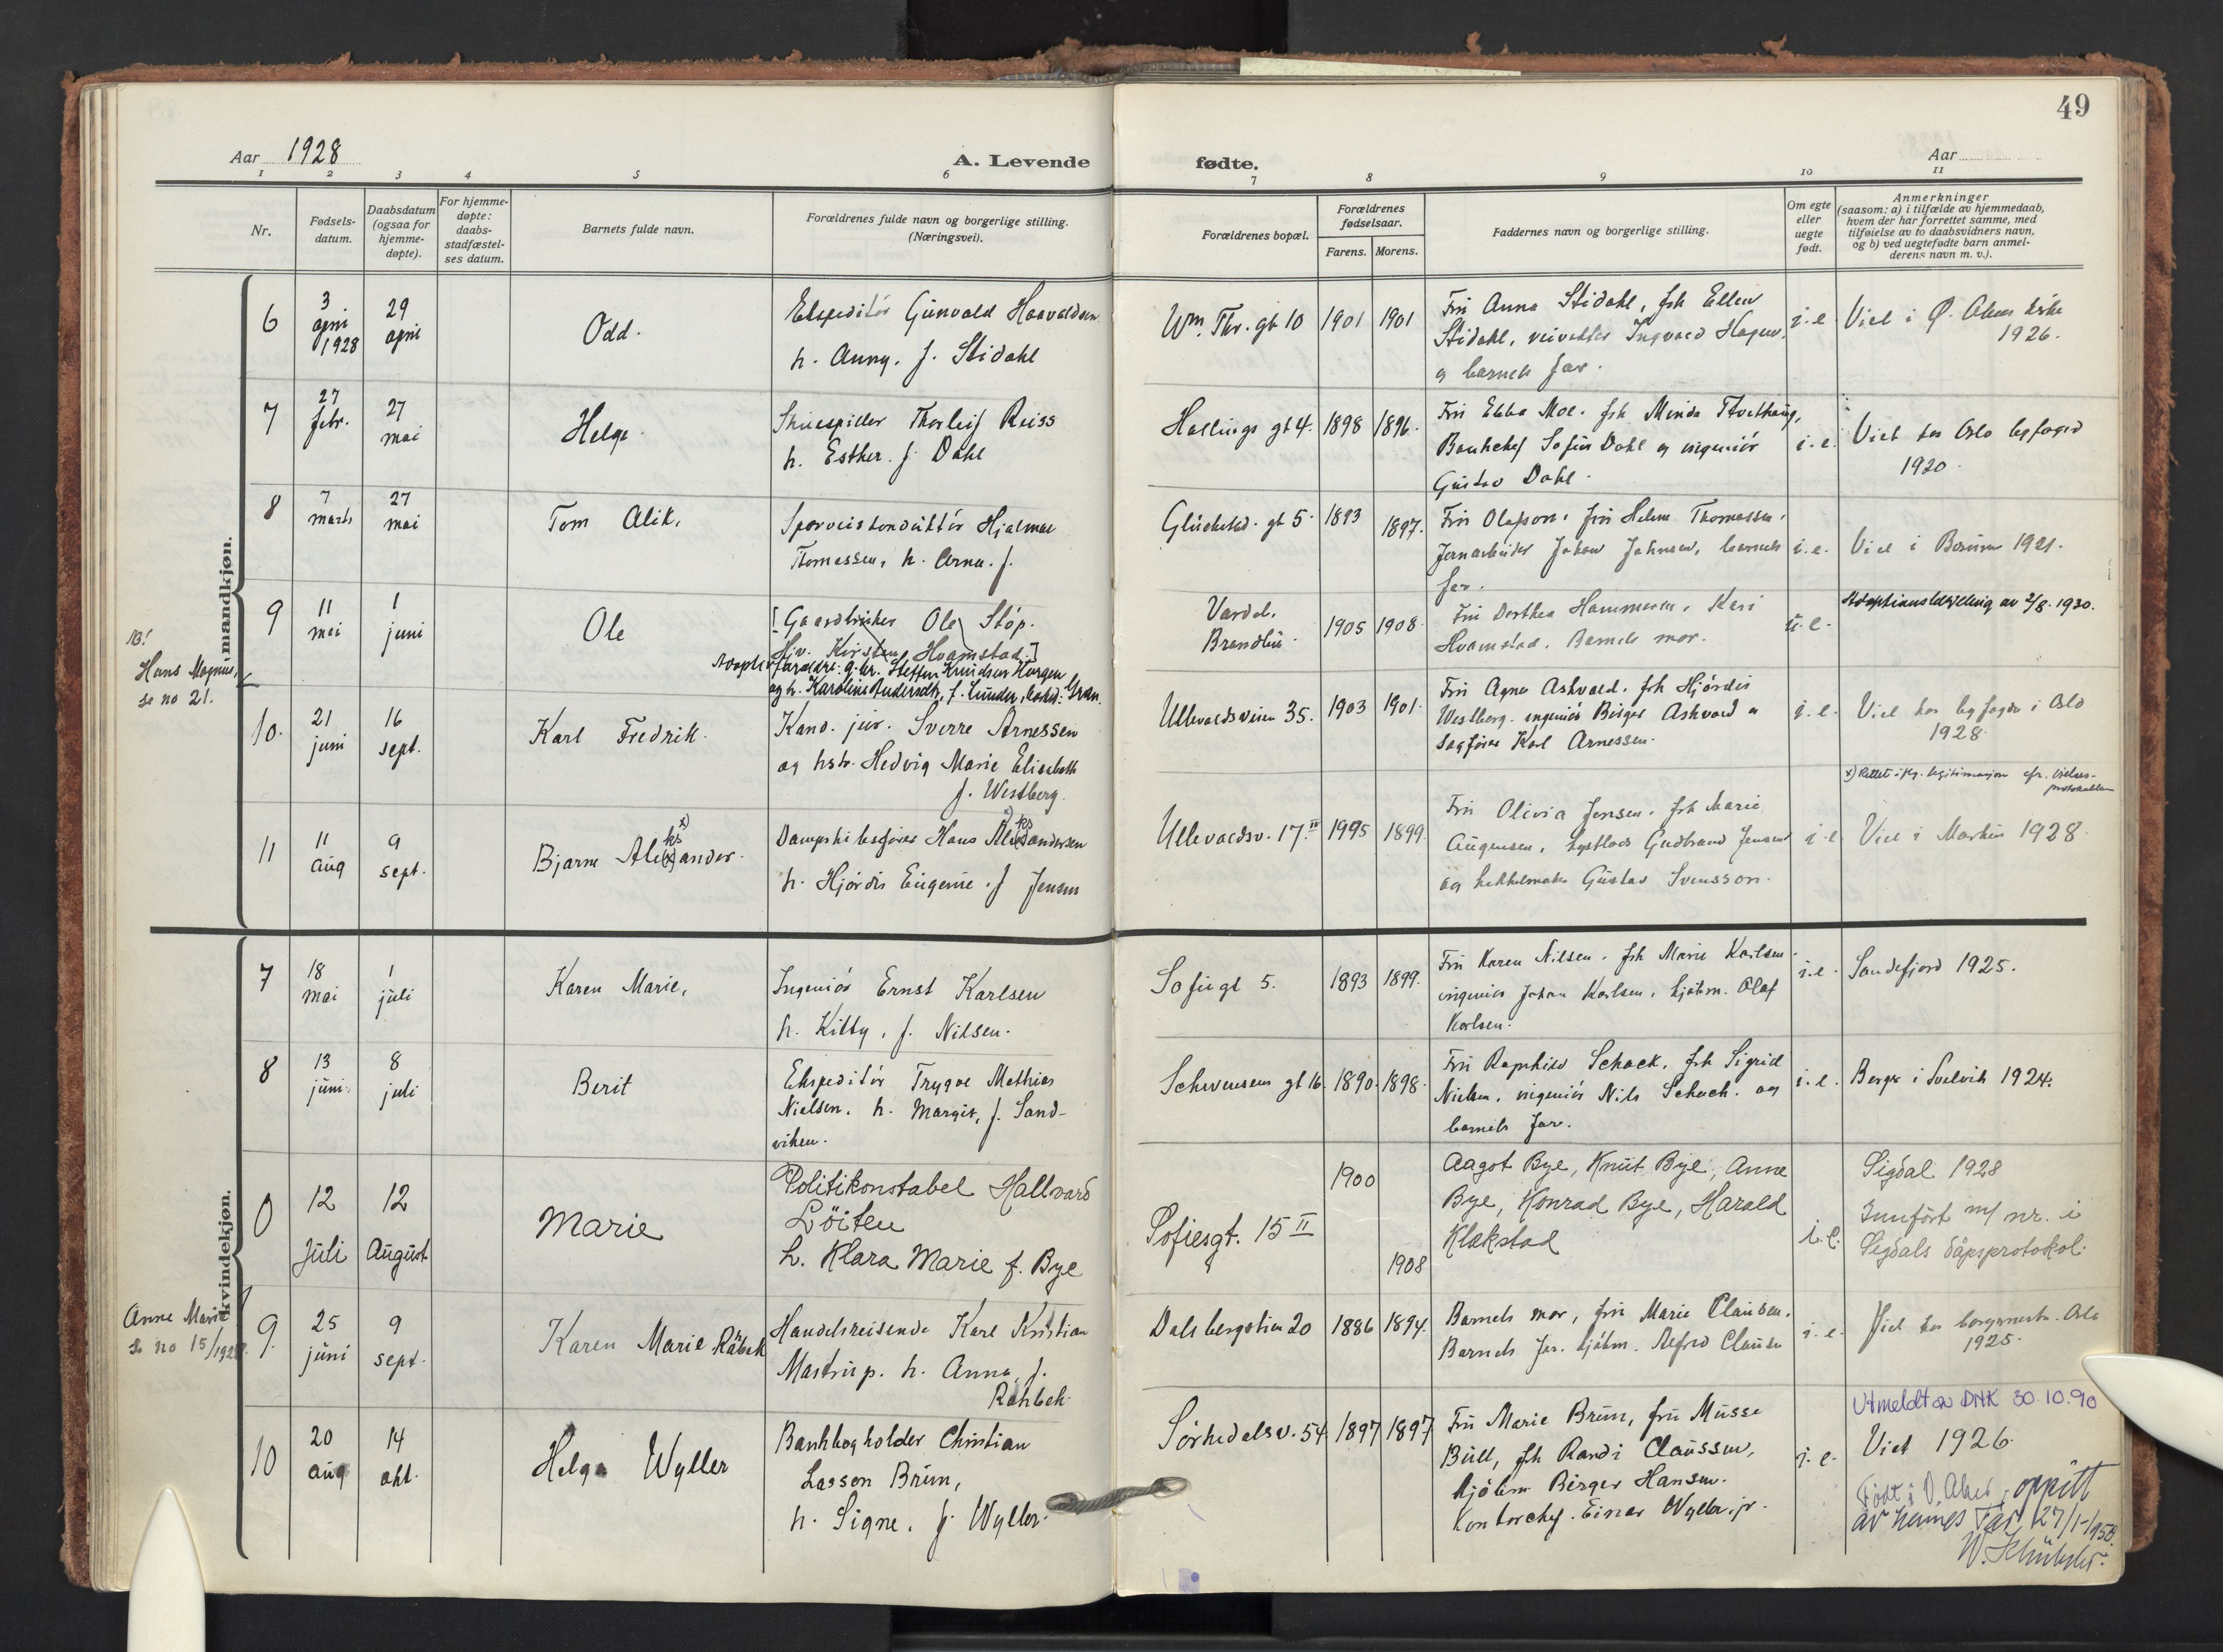 49
Aar 1928
A. Levende
fødte.
Aar
1 2 3 4 5 6 7 8 9 10 11
Nr.
Fødsels-
datum.
Daabsdatum
(ogsaa for
hjemme-
døpte).
For hjemme-
døpte:
daabs-
stadfæstel-
ses datum.
Barnets fulde navn.
Forældrenes fulde navn og borgerlige stilling.
(Næringsvei).
Forældrenes bopæl.
Forældrenes
fødselsaar.
Farens. Morens.
Faddernes navn og borgerlige stilling.
Om egte
eller
uegte
født.
Anmerkninger
(saasom: a) i tilfælde av hjemmedaab,
hvem der har forrettet samme, med
tilføielse av to daabsvidners navn,
og b) ved uegtefødte barn anmel-
derens navn m. v.).
mandkjøn.
6
3
april
1928
29
april
Odd.
Ekspeditör Gunvald Haavaldsen
h. Anny. f. Stidahl
Wm. Thr. gt 10
1901
1901
Fru Anna Stidahl, frk Ellen
Stidahl, Ingvald Hagen,
og barnets far.
i.e.
Viet i Ø. Aker kirke
1926.
7
27
febr.
27
mai
Helge.
Skuespiller Thorleif Reiss
h. Esther. f. Dahl
Hallings gt 4.
1898
1896.
Fru Ebba Moe. frk Minda Tvethaug,
Bankchef Sofus Dahl og ingeniör
Gustav Dahl.
i.e.
Viet hos Oslo byfoged
1920.
8
7
marts
27
mai
Tom Alik,
Sporveiskonduktör Hjalmar
Thomassen, h. Arna. f.
Glückstad. gt 5.
1893
1897.
Fru Olafson. fru Helene Thomassen.
Jernarbeider Johan Johnsen, barnets
far.
i.e.
Viet i Bærum 1921.
NB!
Hans Magnus,
se no 21.
9
11
mai
1
juni
Ole
[Gaardbruker Ole Stöp.
Hjv. Kirsten Hvamstad.]
Adoptivforældre: g.br. Steffen Knudsen Horgen
og h. Karoline Andersdtr, f. Lunder, bosted: Gran.
Vardal.
Brandbu.
1905
1908.
Fru Dorthea Hammeren, Kari
Hvamstad. Barnets mor.
u.e.
Adoptionsbevilling av 2/8. 1930.
10.
21
juni
16
sept.
Karl Fredrik.
Kand. jur. Sverre Arnessen
og hstr. Hedvig Marie Elisabeth
f. Westberg.
Ullevaalsveien 35.
1903
1901.
Fru Agnes Askvald. frk Hjördis
Westberg. ingeniör Birger Askvald og
sagförer Karl Arnessen.
i.e.
Viet hos byfogden i Oslo
1928.
x) Rettet i flg. legitimasjon cfr. vielses-
protokollen
11
11
aug
9
sept.
Bjarne Ale(x)ander.
ks
x)
Dampskibsförer Hans Ale(x)andersen
ks
h. Hjördis Eugenie. f Jensen
Ullevaalsv. 17. IV
1995
1899.
Fru Olivia Jensen. frk Marie
Gudbrand Jensen
og Gustav Svensson.
i.e.
Viet i 1928.
kvindekjøn.
7
18
mai
1
juli
Karen Marie,
Ingeniör Ernst Karlsen
h. Kitty, f. Nilsen.
Sofiegt 5.
1893
1899.
Fru Karen Nilsen. frk Marie Karlsen.
ingeniör Johan Karlsen, kjöbm. Olaf
Karlsen.
i.e.
Sandefjord 1925.
8
13
juni.
8
juli
Berit
Ekspeditör Trygve Mathias
Nielsen. h. Margit, f. Sand-
viken.
Schwensens gt 16.
1890.
1898.
Fru Ragnhild Schack. frk Sigrid
Nielsen. ingeniör Nils Schack. og
barnets far.
i.e.
Berger i Svelvik 1924.
0
12
Juli
12
August
Marie
Politikonstabel Hallvard
Löiten
h. Klara Marie f. Bye
Sofiesgt. 15 II
1900
1908
Aagot Bye, Knut Bye, Anne
Bye, Konrad Bye, Harald
Klakstad
i.e.
Sigdal 1928
Innfört m/ nr. i
Sigdals dåpsprotokol.
Anne Marie
se no 15/1928.
9.
25
juni
9
sept.
Karen Marie Råbek
Handelsreisende Karl Kristian
Mastrup. h. Anna, f.
Rahbek.
Dalsbergstien 20
1886
1894.
Barnets mor, fru Marie Clausen.
Barnets far. kjöbm. Alfred Clausen
i.e.
Viet hos borgermstr. Oslo
1925.
10
20
aug
14
okt.
Helga Wyller
Bankbogholder Christian
Lasson Brun,
h. Signe, f. Wyller.
Sörkedalsv. 54
1897
1897
Fru Marie Brun, fru Musse
Bull, frk Randi Claussen,
kjöbm Birger Hansen.
Kontorchef. Einar Wyller. jr.
i.e.
Utmeldt av DNK 30.10.90
Viet 1926.
Födt i V. Aker, oppgitt
av hennes far 27/1-1958.